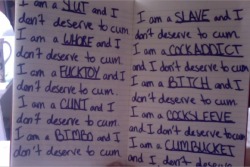 I am a SLUT and I
don't deserve to cum
I am a WHORE and I
don't deserve to cum.
I am a FUCKTOY and I
don't deserve to cum
I am a CUNT and I
don't deserve to cum
I am a BIMBO and I
don't deserve to cum
I am a SLAVE and I
don't deserve to cum.
I am a COCK ADDICT
and I don't deserve to cum
I am a BITCH and I
don't deserve to cum
I am a COCKY FEVE
and I don't deserve to cum
I am a CUMBUCKET
and I don't deserve